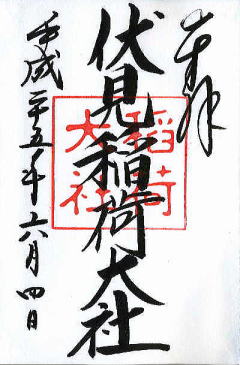 奉拝
伏見稲荷大社
稲荷
大社
平成二十五年六月四日